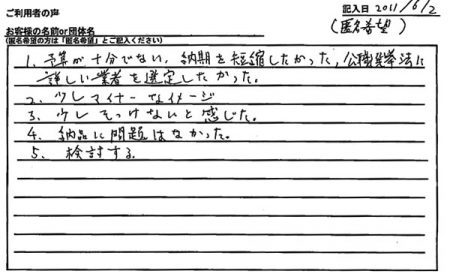 ご利用者の声
記入日 2011/6/2
お客様の名前or団体名
(匿名希望)
(匿名希望の方は「匿名希望」とご記入ください)
1. 予算が十分でない, 納期を短縮したかった, 公職選挙法に
詳しい業者を選定したかった。
2. 少しマイナーなイメージ
3. 少しそっけないと感じた。
4. 納品に問題はなかった。
5. 検討する